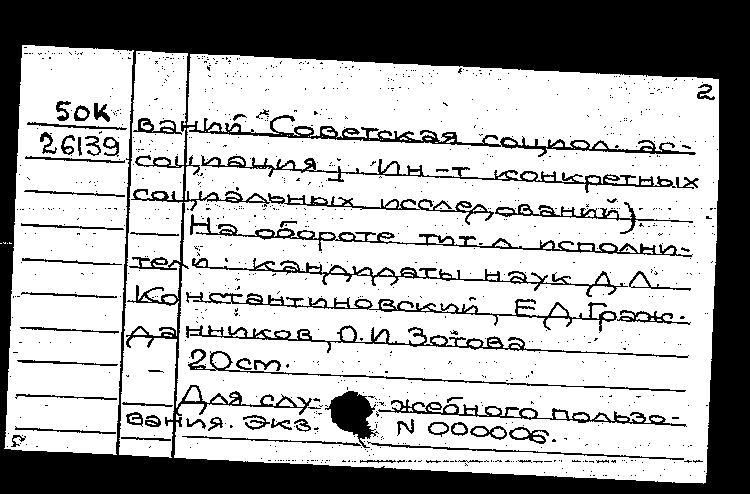 2
50К
26139
ваний. Советская социол. ас-
социация j. Ин-т конкретных
социальных исследований).
На обороте тит. л. исполни-
тели: кандидаты наук Д.Л.
Константиновский, Е.Д. Граж-
данников, О.И. Зотова
20 cm.
Для слу- жебного пользо-
вания. Экз. N 000006.